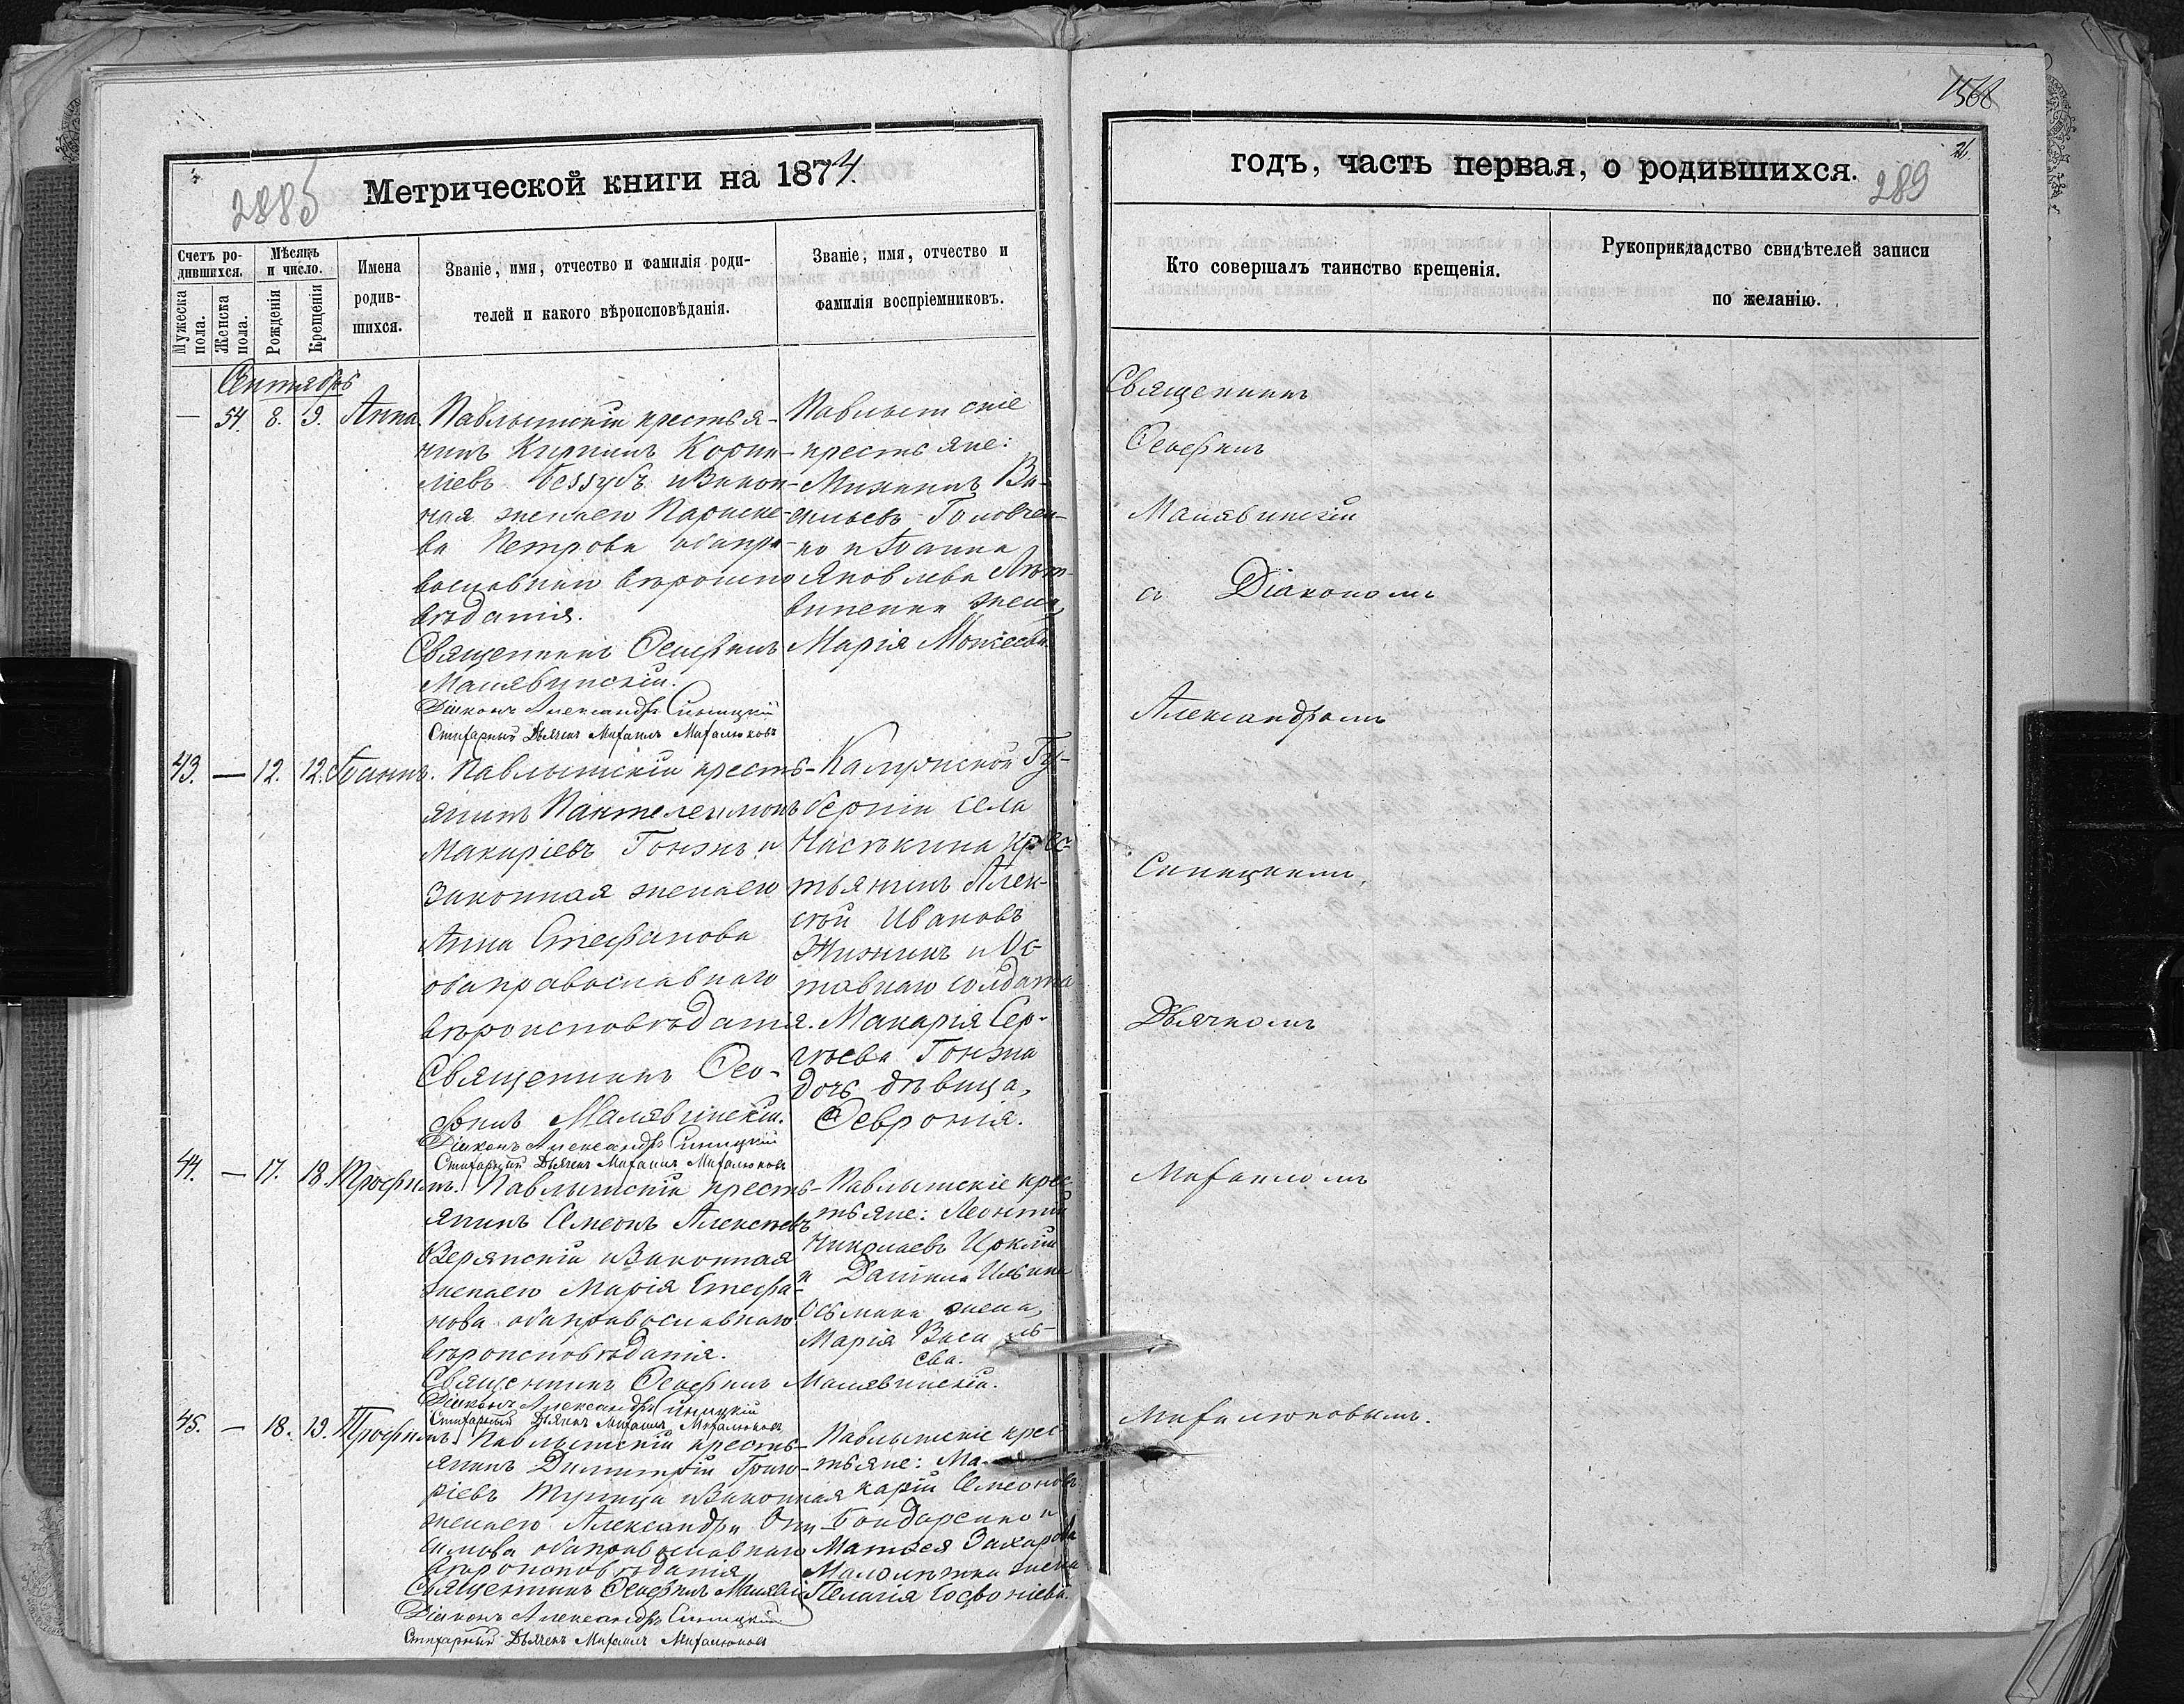 2885
Метрической книги на 1874.
Счетъ родившихся.
Мужеска пола.
Женска пола.
Мѣсяцъ и число.
Рожденія
Крещенія
Имена родившихся.
Званіе, имя, отчество и фамилія роди-
телей и какого вѣроисповѣданія.
Званіе, имя, отчество и
фамилія воспріемниковъ.
Сентябрь
— 54. 8. 9. Анна.
Павлышскій крестья-
нинъ Кириллъ Корни-
ліевъ Беззубъ и Закон-
ная жена его Параске-
ва Петрова оба пра-
вославнаго вѣроиспо
вѣданія.
Священникъ Ѳеофилъ
Малявинскій.
Діаконъ Александръ Синицкій
Стихарный Дьячекъ Михаилъ Михалюковъ
Павлышскіе
крестьяне:
Михаилъ Ва-
сильевъ Головчен-
ко и Іоанна
Яковлева Лит-
виненка жена,
Марія Моисеева.
43. — 12. 12. Іоаннъ.
Павлышскій кресть-
янинъ Пантелеимонъ
Макаріевъ Гонжа и
законная жена его
Анна Стефанова
оба православнаго
вѣроисповѣданія.
Священникъ Ѳео-
филъ Малявинскій.
Діаконъ Александръ Синицкій
Стихарный Дьячекъ Михаилъ Михалюковъ
Калужской Гу-
берніи села
крес-
тьянинъ Алек-
сѣй Ивановъ
и От-
тавнаго солдата
Макарія Сер-
гѣева Гонжа
дочь дѣвица,
Ѳевронія.
44. — 17. 18. Трофимъ.
Павлышскій кресть-
янинъ Симеонъ Алексѣевъ
Озерянскій и Законная
жена его Марія Стефа-
нова оба православнаго
вѣроисповѣданія.
Священникъ Ѳеофилъ Малявинскій.
Діаконъ Александръ Синицкій
Стихарный Дьячекъ Михаилъ Михалюковъ
Павлышскіе крес
тьяне: Леонтій
Николаевъ Ирклій
и Даніила Ильина
Осьмака жена,
Марія Василь-
ева.
45. — 18. 19. Трофимъ.
Павлышскій кресть-
янинъ Димитрій Григо-
ріевъ и Законная
жена его Александра Они-
симова оба православнаго
вѣроисповѣданія
Священникъ Ѳеофилъ
Діаконъ Александръ Синицкій
Стихарный Дьячекъ Михаилъ Михалюковъ
Павлышскіе крес-
тьяне: Ма-
карій Симеоновъ
Бондаренко и
Матѳея Захарова
жена
Пелагія Софроніева.
1568
годъ, часть первая, о родившихся.
26.
289
Кто совершалъ таинство крещенія.
Рукоприкладство свидѣтелей записи
по желанію.
Священникъ
Ѳеофилъ
Малявинскій
съ Діакономъ
Александромъ
Синицкимъ,
Дьячкомъ
Михаиломъ
Михалюковымъ.